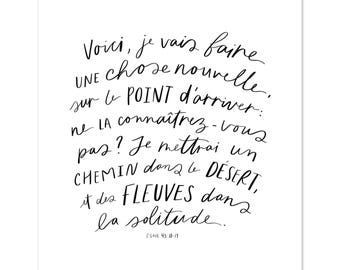 Voici, je vais faire
UNE chose nouvelle,
sur le POINT d'arriver:
ne LA connaîtrez-vous
pas? Je mettrai un
CHEMIN dans le DÉSERT,
et des FLEUVES dans
la solitude.
ÉSAÏE 43:18-19